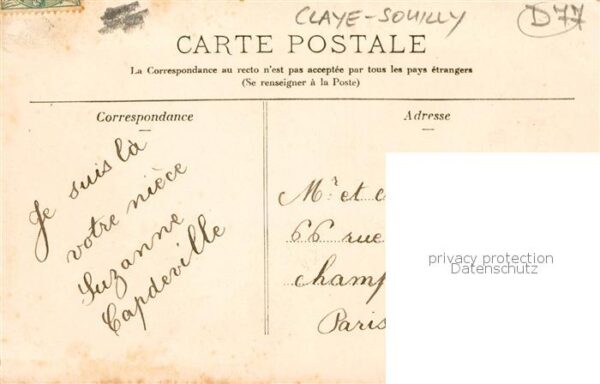 CLAYE-SOUILLY D77
CARTE POSTALE
La Correspondance au recto n'est pas acceptée par tous les pays étrangers
(Se renseigner à la Poste)
Correspondance
Adresse
Je suis là
votre nièce
Suzanne
Capdeville
Mr et
66 rue
Champ
Paris
privacy protection
Datenschutz